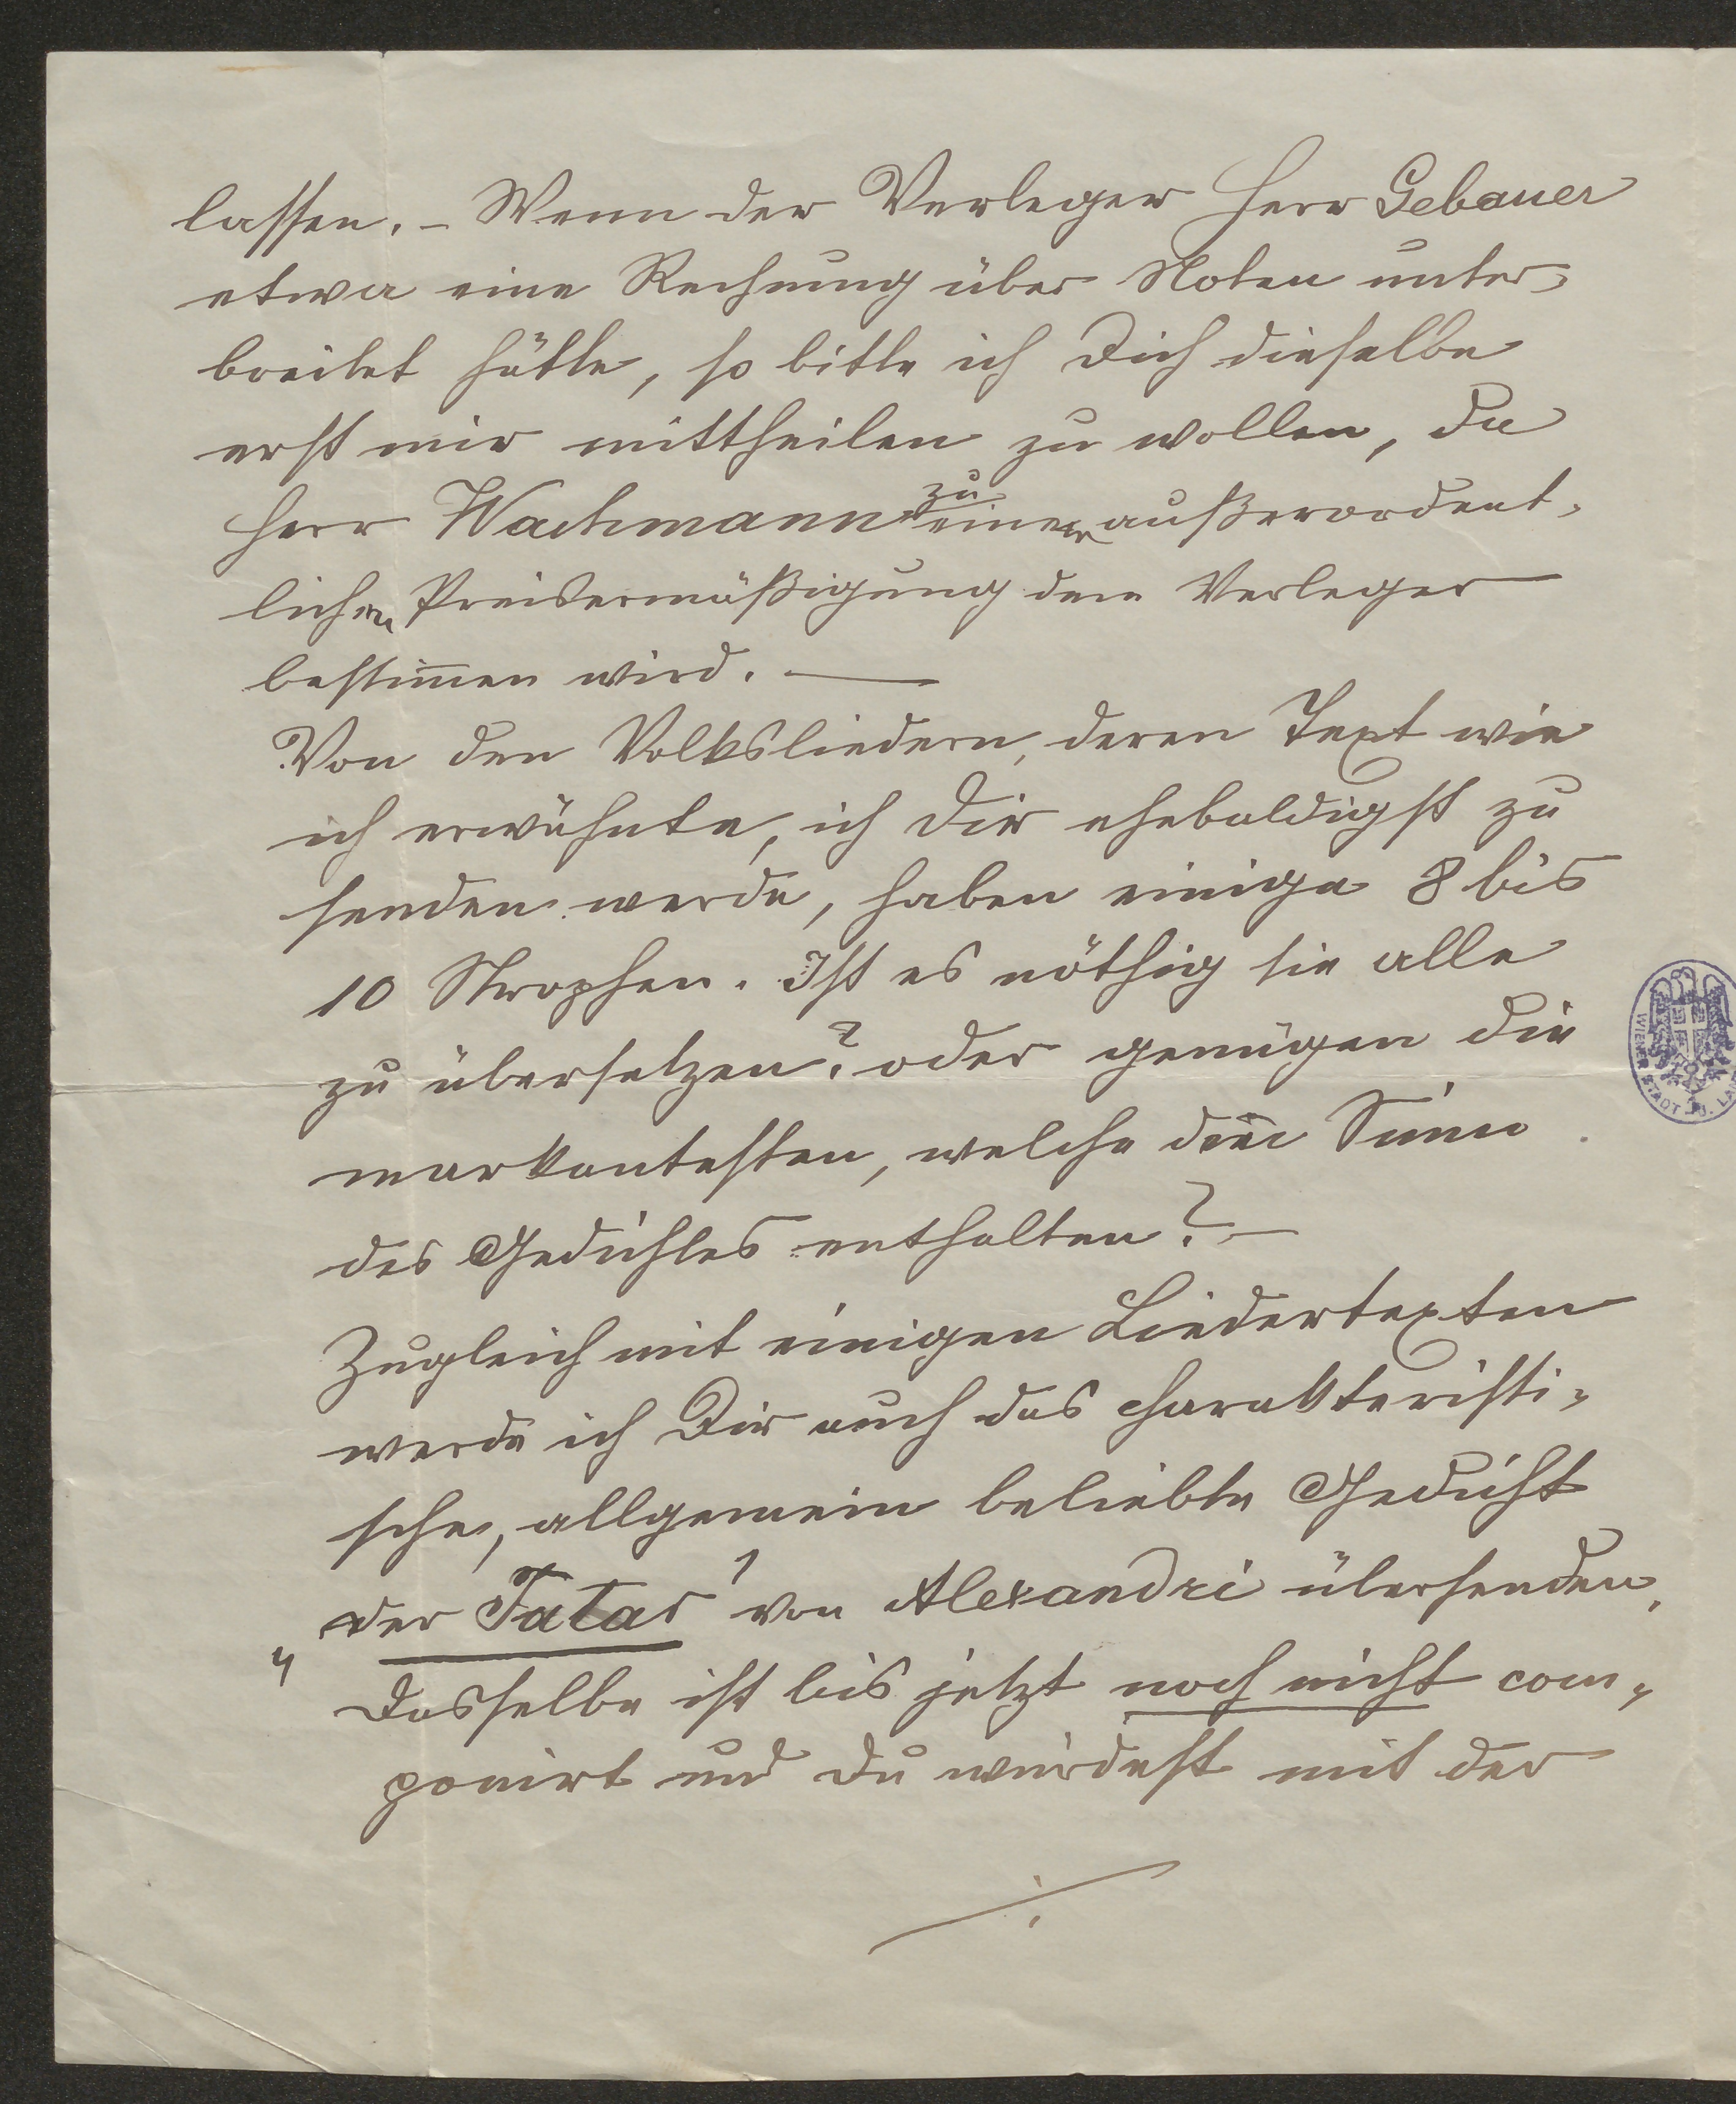 lassen. – Wenn der Verleger Herr Gebauer
etwa eine Rechnung über Noten unter-
breitet hätte, so bitte ich Dich dieselbe
erst mir mittheilen zu wollen, da
Herr Wachmann zu einer außerordent-
lichen Preisermäßigung den Verleger
bestim̄en wird. —
Von den Volksliedern, deren Text wie
ich erwähnte, ich Dir ehebaldigst zu
senden werde, haben einige 8 bis
10 Strophen. Ist es nöthig sie alle
zu übersetzen? oder genügen die
markantesten, welche den Sinn
des Gedichtes enthalten? –
Zugleich mit einigen Liedertexten
werde ich Dir auch das charakteristi-
sche, allgemein beliebte Gedicht
„der Tatar" von Alexandri übersenden,
dasselbe ist bis jetzt noch nicht com-
ponirt und Du würdest mit der
./.
WIENER STADT U. LA